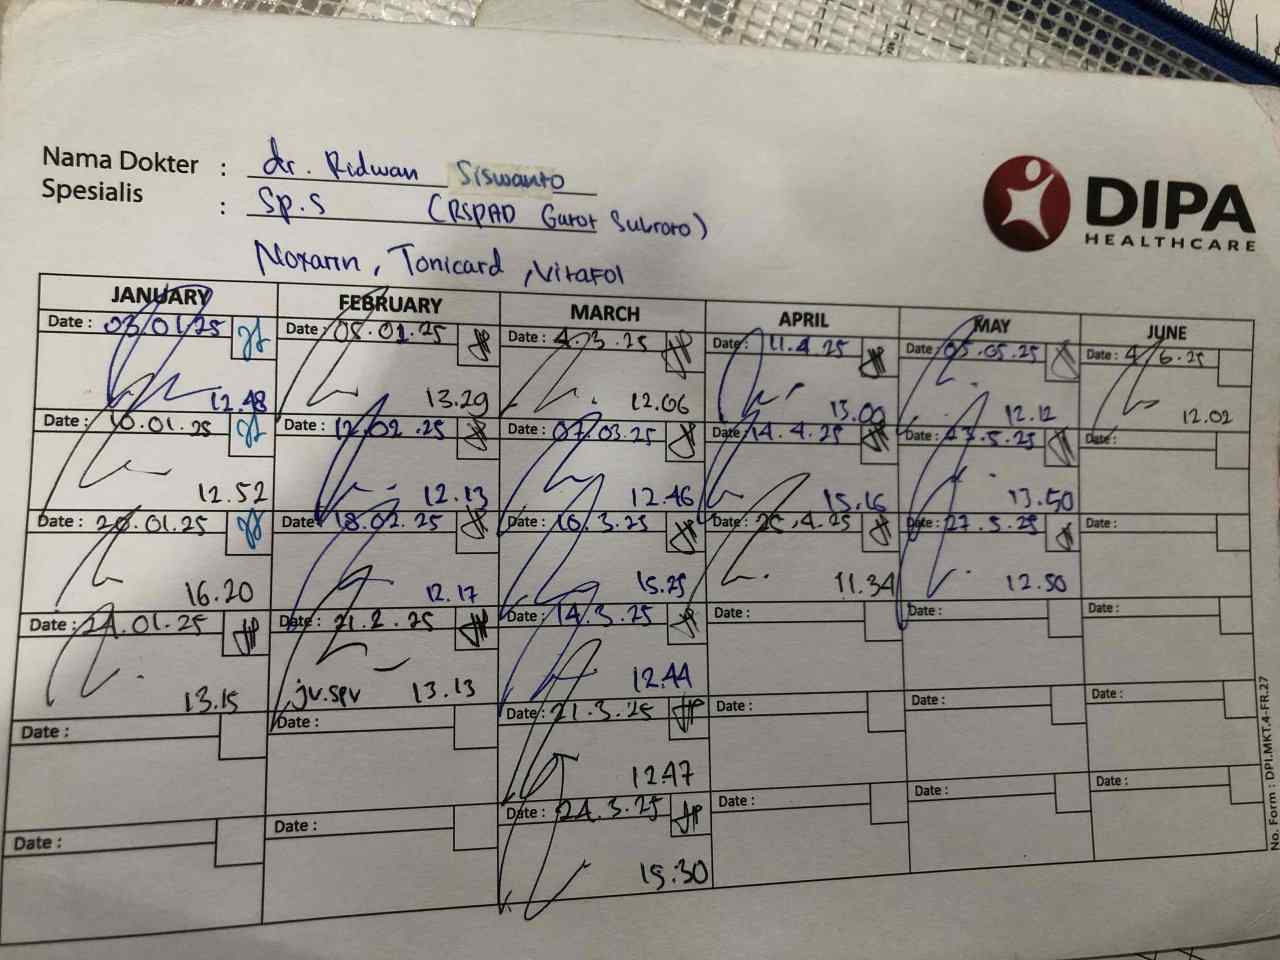 Nama Dokter : dr. Ridwan Siswanto
Spesialis : Sp.S (RSPAD Gatot Subroto)
DIPA
HEALTHCARE
Noxarin, Tonicard, Vitafol
JANUARY FEBRUARY MARCH APRIL MAY JUNE
Date : 03/01/25 Date : 05.02.25 Date : 4.3.25 Date : 11.4.25 Date : 05.05.25 Date : 4/6.25
12.48 13.29 12.06 13.00 12.12 12.02
Date : 10.01.25 Date : 12/02.25 Date : 07.03.25 Date : 14.4.25 Date : 5.25 Date :
12.52 12.13 12.46 15.16 13.50
Date : 20.01.25 Date : 18.02.25 Date : 10.3.25 Date : 25.4.25 Date : 27.5.25 Date :
16.20 12.17 15.25 11.34 12.50
Date : 24.01.25 Date : 21.2.25 Date : 14.3.25 Date : Date : Date :
13.15 jv.spv 13.13 12.44
Date : Date : Date : 21.3.25 Date : Date : Date :
12.47
Date : Date : Date : 24.3.25 Date : Date : Date :
15.30
No. Form : DPI.MKT.4-FR.27